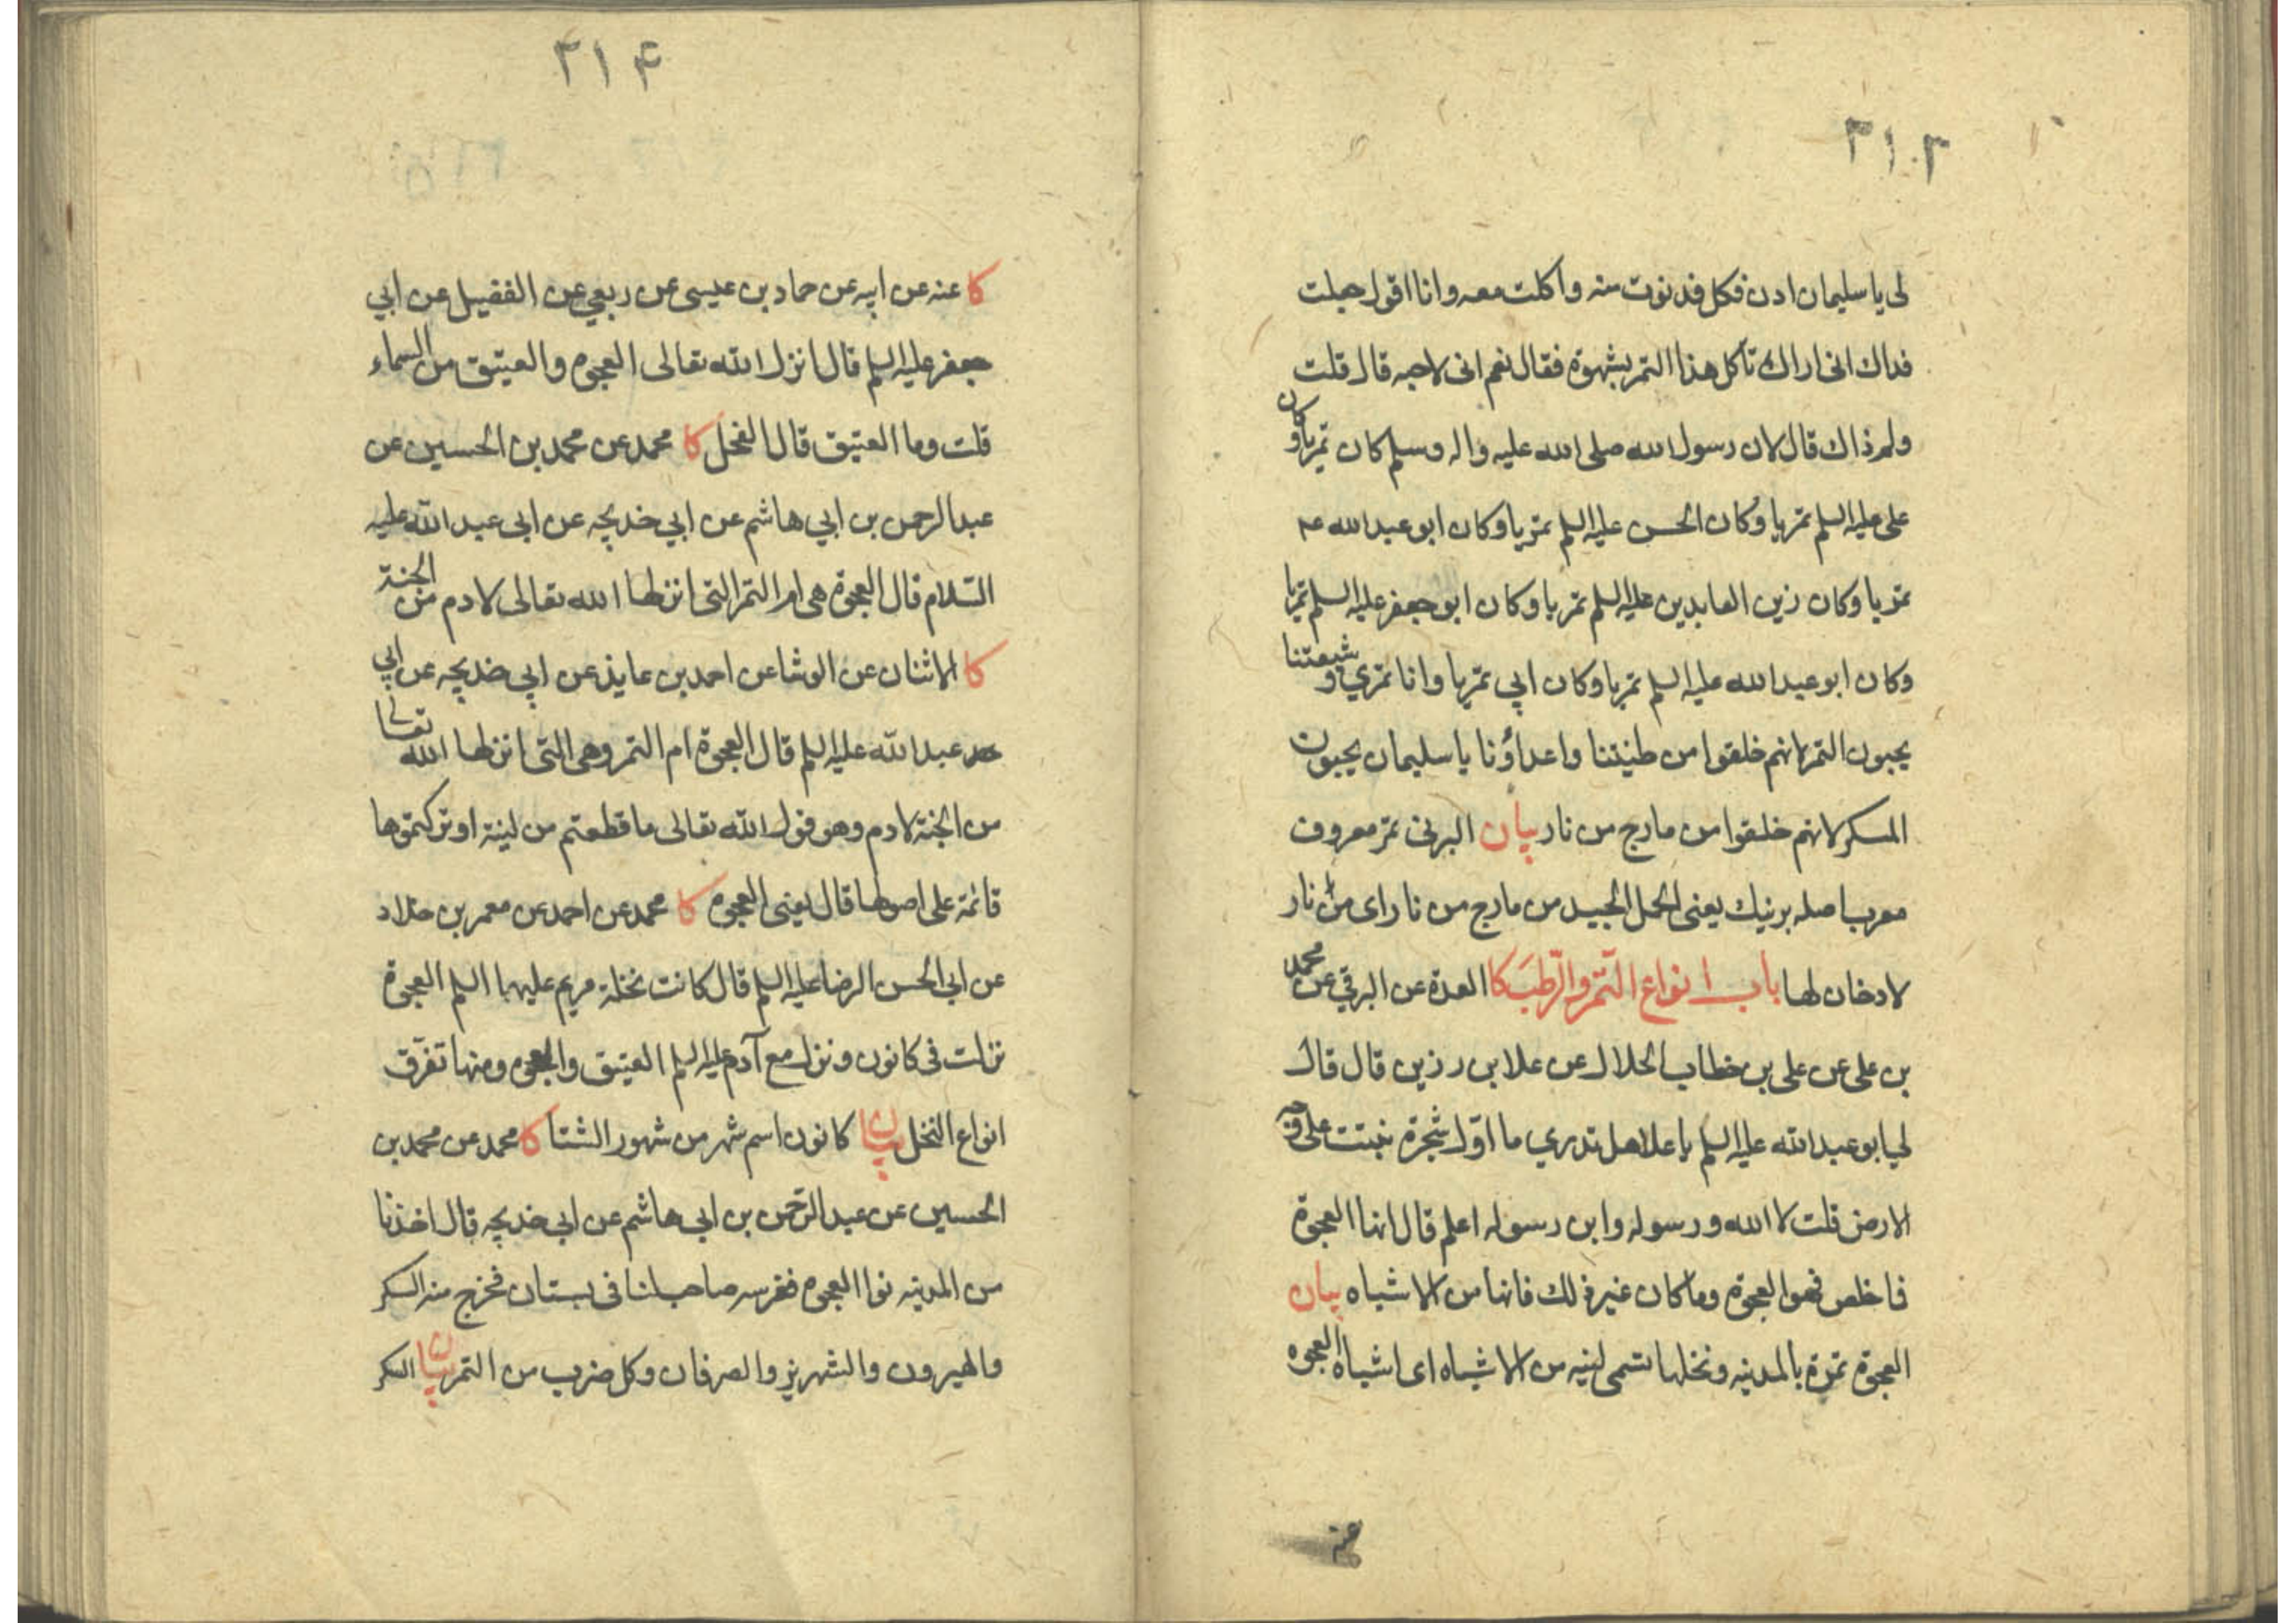 ۳۱۳
لى يا سليمان ادن فكل فدنوت منه واكلت معه وانا اقول جعلت
فداك انى اراك تاكل هذا التمر بشهوة فقال نعم انى لاحبه قال قلت
ولم ذاك قال لان رسول الله صلى الله عليه واله وسلم كان تمريا وكان
على عليه السلم تمريا وكان الحسن عليه السلم تمريا وكان ابو عبد الله عم
تمريا وكان زين العابدين عليه السلم تمريا وكان ابو جعفر عليه السلم تمريا
وكان ابو عبد الله عليه السلم تمريا وكان ابي تمريا وانا تمري وشيعتنا
يحبون التمر لانهم خلقوا من طينتنا واعداؤنا يا سليمان يحبون
المسكر لانهم خلقوا من مارج من نار بيان البرنى تمر معروف
معرب اصله برنيك يعنى الحمل الجيد من مارج من نار اى من نار
لا دخان لها باب انواع التّمر والرّطب كا العدة عن البرقي عن محمد
بن على عن على بن خطاب الحلال عن علا بن رزين قال قال
لي ابو عبد الله عليه السلم يا علا هل تدري ما اوّل شجرة نبتت على وجه
الارض قلت لا الله ورسوله وابن رسوله اعلم قال انها العجوة
فا خلص فهو العجوة وما كان غير ذلك فانها من الاشباه بيان
العجوة تمرة بالمدينه ونخلها تسمى لينه من الاشباه اى اشباه العجوه
۳۱۴
كا عنه عن ابيه عن حماد بن عيسى عن ربعي عن الفضيل عن ابي
جعفر عليه السلم قال انزل الله تعالى العجوه والعتيق من السماء
قلت وما العتيق قال الفحل كا محمد عن محمد بن الحسين عن
عبد الرحمن بن ابي هاشم عن ابي خديجه عن ابى عبد الله عليه
السّلام قال العجوة هى ام التمر التى انزلها الله تعالى لادم من الجنة
كا الاثنان عن الوشا عن احمد بن عايذ عن ابي خديجه عن ابي
عبد الله عليه السلم قال العجوة ام التمر وهى التى انزلها الله تعالى
من الجنة لادم وهو قول الله تعالى ما قطعتم من لينة او تركتموها
قائمة على اصولها قال يعنى العجوه كا محمد عن احمد عن معمر بن خلاد
عن ابى الحسن الرضا عليه السلم قال كانت نخلة مريم عليها السلم العجوة
نزلت فى كانون ونزل مع آدم عليه السلم العتيق والعجوه ومنها تفرّق
انواع النخل بيان كانون اسم شهر من شهور الشتا كا محمد عن محمد بن
الحسين عن عبد الرّحمن بن ابى هاشم عن ابى خديجه قال اخذنا
من المدينه نوا العجوه فغرسه صاحب لنا فى بستان فخرج منه السكر
والهيرون والشهريز والصرفان وكل ضرب من التمر بيان السكر